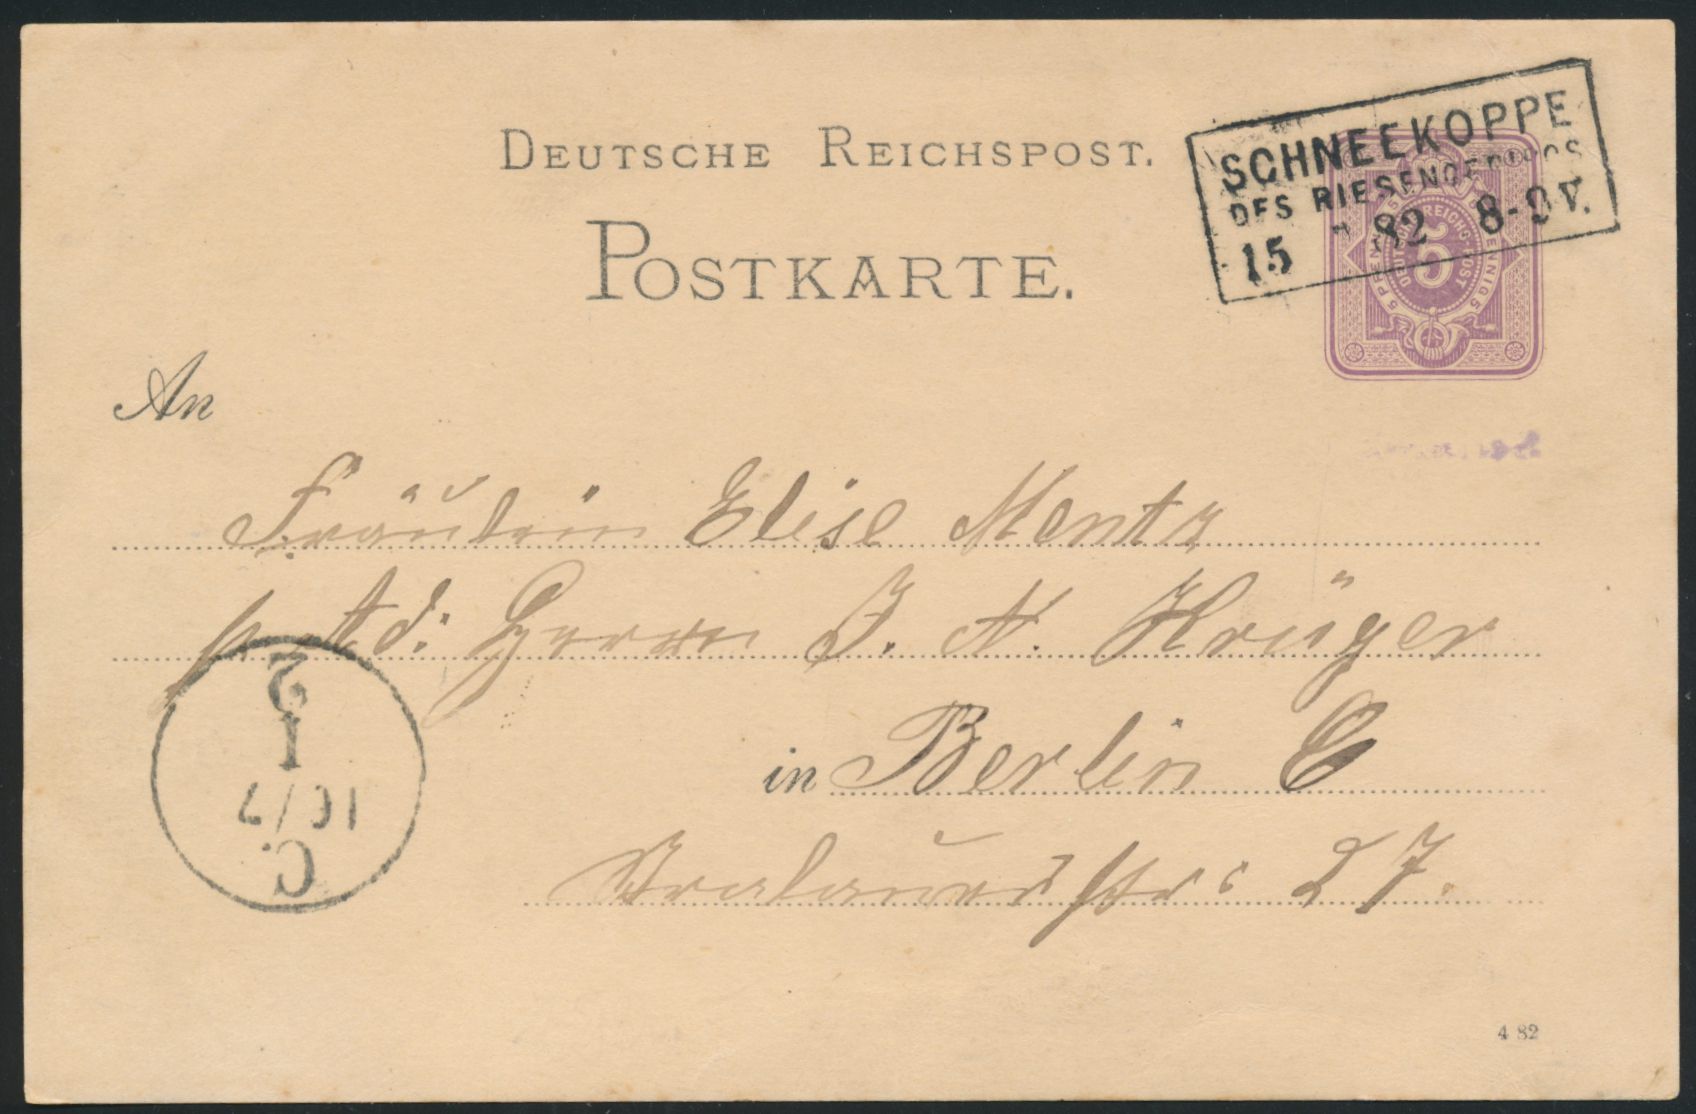 DEUTSCHE REICHSPOST.
POSTKARTE.
SCHNEEKOPPE
DES RIESENGEBIRGES
15 7 82 8-9 V.
DEUTSCHE REICHS-POST
5
5 PFENNIG 5
An
Fräulein Elise Mentz
p. Ad: Herrn J. N. Krüger
in Berlin C
Stralauer Str: 27.
2
1
16/7
C.
4 82